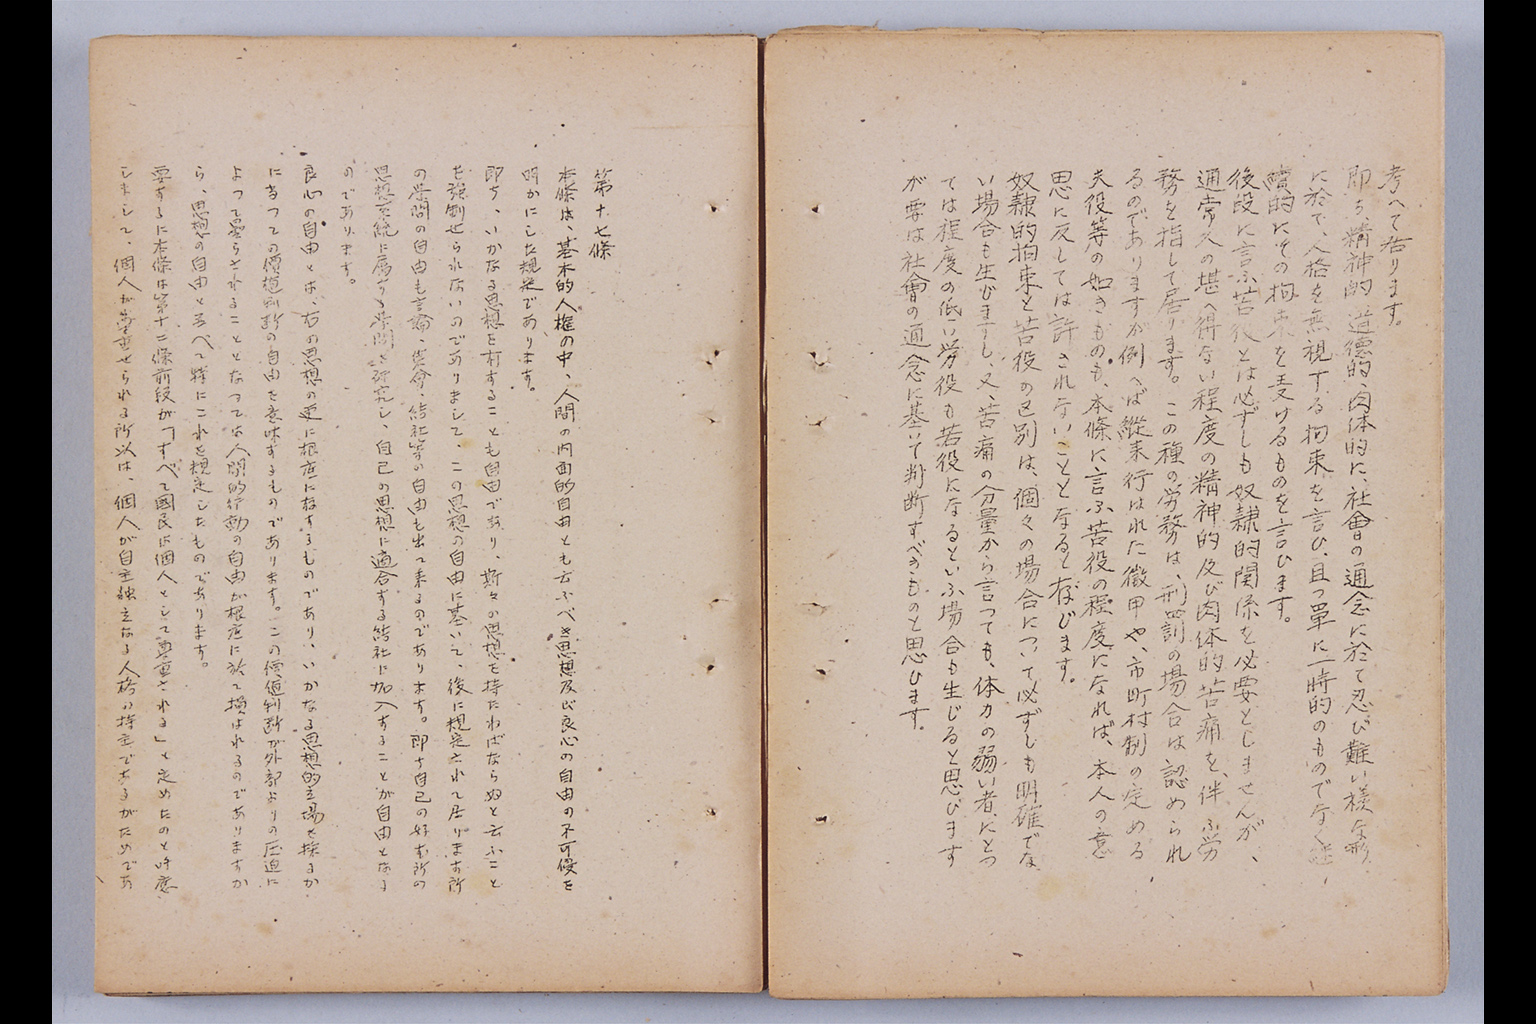 考へて居ります。
即ち、精神的、道徳的、肉体的に、社會の通念に於て忍び難い様な形
に於て、人格を無視する拘束を言ひ、且つ單に一時的のものでなく継
續的にその拘束を受けるものを言ひます。
後段に言ふ苦役とは必ずしも奴隷的関係を必要としませんが、
通常人の堪へ得ない程度の精神的及び肉体的苦痛を伴ふ労
務を指して居ります。この種の労務は、刑罰の場合は認められ
るのでありますが例へば縦来行はれた徴用や、市町村制の定める
夫役等の如きものも、本條に言ふ苦役の程度になれば、本人の意
思に反しては許されないことゝなると存じます。
奴隷的拘束と苦役の区別は、個々の場合について必ずしも明確でな
い場合も生じますし、又、苦痛の分量から言つても、体力の弱い者にとつ
ては程度の低い労役も苦役になるといふ場合も生じると思びます
が要は社會の通念に基いて判断すべきものと思ひます。
第十七條
本條は、基本的人権の中、人間の内面的自由とも云ふべき思想及び良心の自由の不可侵を
明かにした規定であります。
即ち、いかなる思想を有することも自由であり、斯々の思想を持たねばならぬと云ふこと
を強制せられないのでありまして、この思想の自由に基いて、後に規定されて居ります所
の学問の自由も言論、集會、結社等の自由も出て来るのであります。即ち自己の好む所の
思想系統に属する学問を研究し、自己の思想に適合する結社に加入することが自由となる
のであります。
良心の自由とは、右の思想の更に根底に存するものであり、いかなる思想的立場を採るか
に当つての價値判断の自由を意味するものであります。この價値判断が外部よりの圧迫に
よつて曇らされることとなつては人間的行動の自由が根底に於て損はれるのでありますか
ら、思想の自由と並べて特にこれを規定したものであります。
要するに本條は第十二條前段が「すべて國民は個人として尊重される」と定めたのと呼應
しまして、個人が尊重せられる所以は、個人が自主独立なる人格の持主であるがためであ